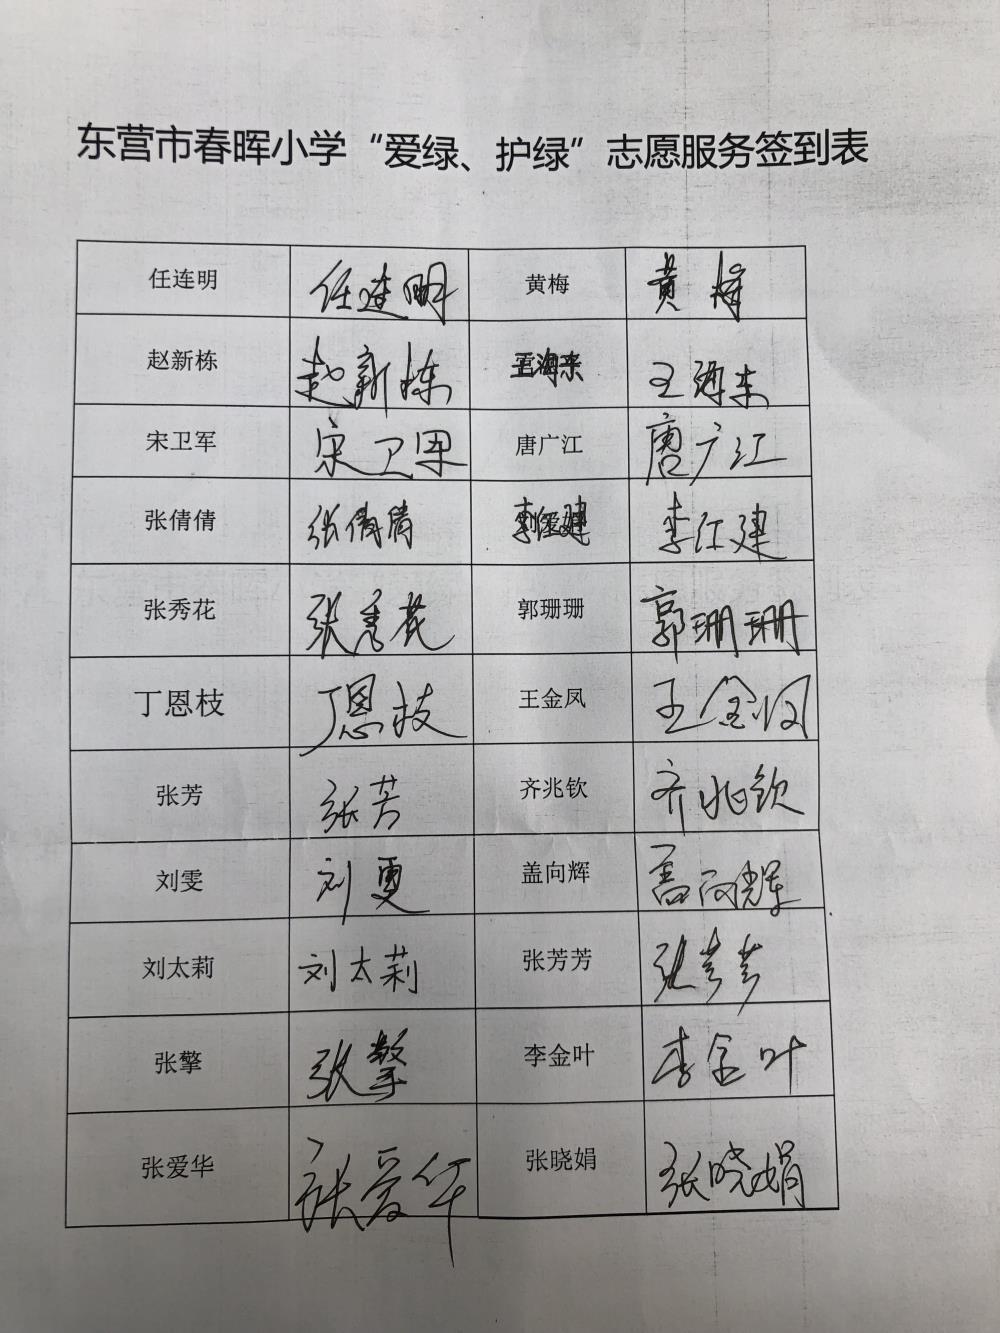 东营市春晖小学“爱绿、护绿”志愿服务签到表
任连明 任连明 黄梅 黄梅
赵新栋 赵新栋 王海东
宋卫军 宋卫军 唐广江 唐广江
张倩倩 张倩倩 李红建
张秀花 张秀花 郭珊珊 郭珊珊
丁恩枝 丁恩枝 王金凤 王金凤
张芳 张芳 齐兆钦 齐兆钦
刘雯 刘雯 盖向辉 盖向辉
刘太莉 刘太莉 张芳芳 张芳芳
张擎 张擎 李金叶 李金叶
张爱华 张爱华 张晓娟 张晓娟